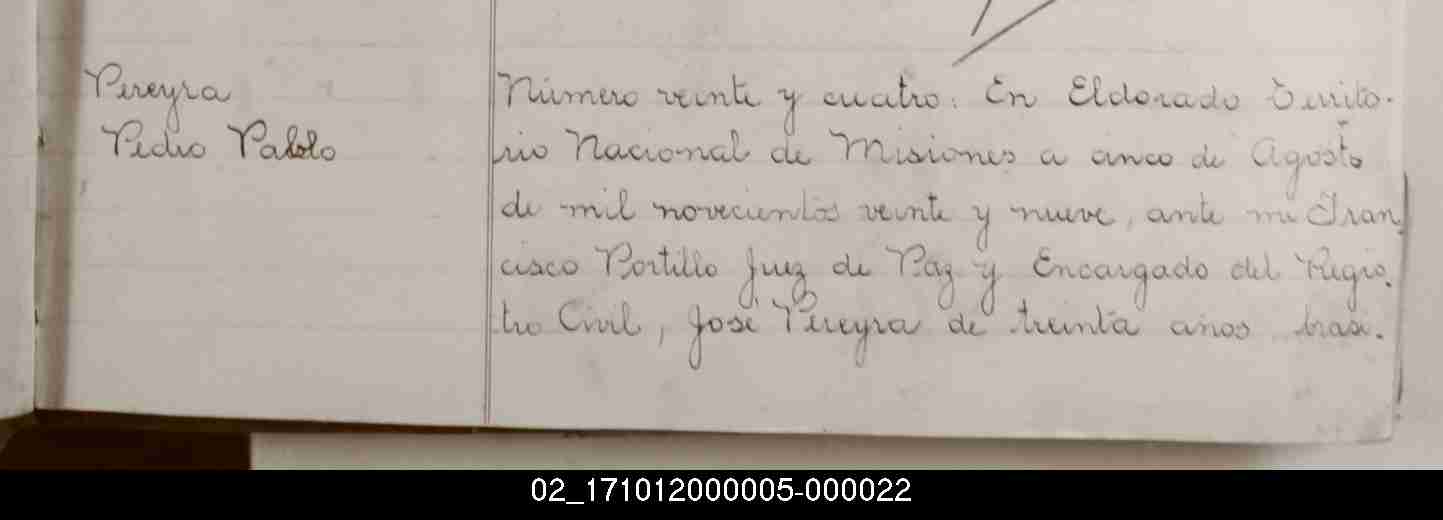 Pereyra
Pedro Pablo
Número veinte y cuatro. En Eldorado Territo-
rio Nacional de Misiones a cinco de Agosto
de mil novecientos veinte y nueve, ante mi Fran-
cisco Portillo Juez de Paz y Encargado del Regis-
tro Civil, José Pereyra de treinta años, brasi-
02_171012000005-000022